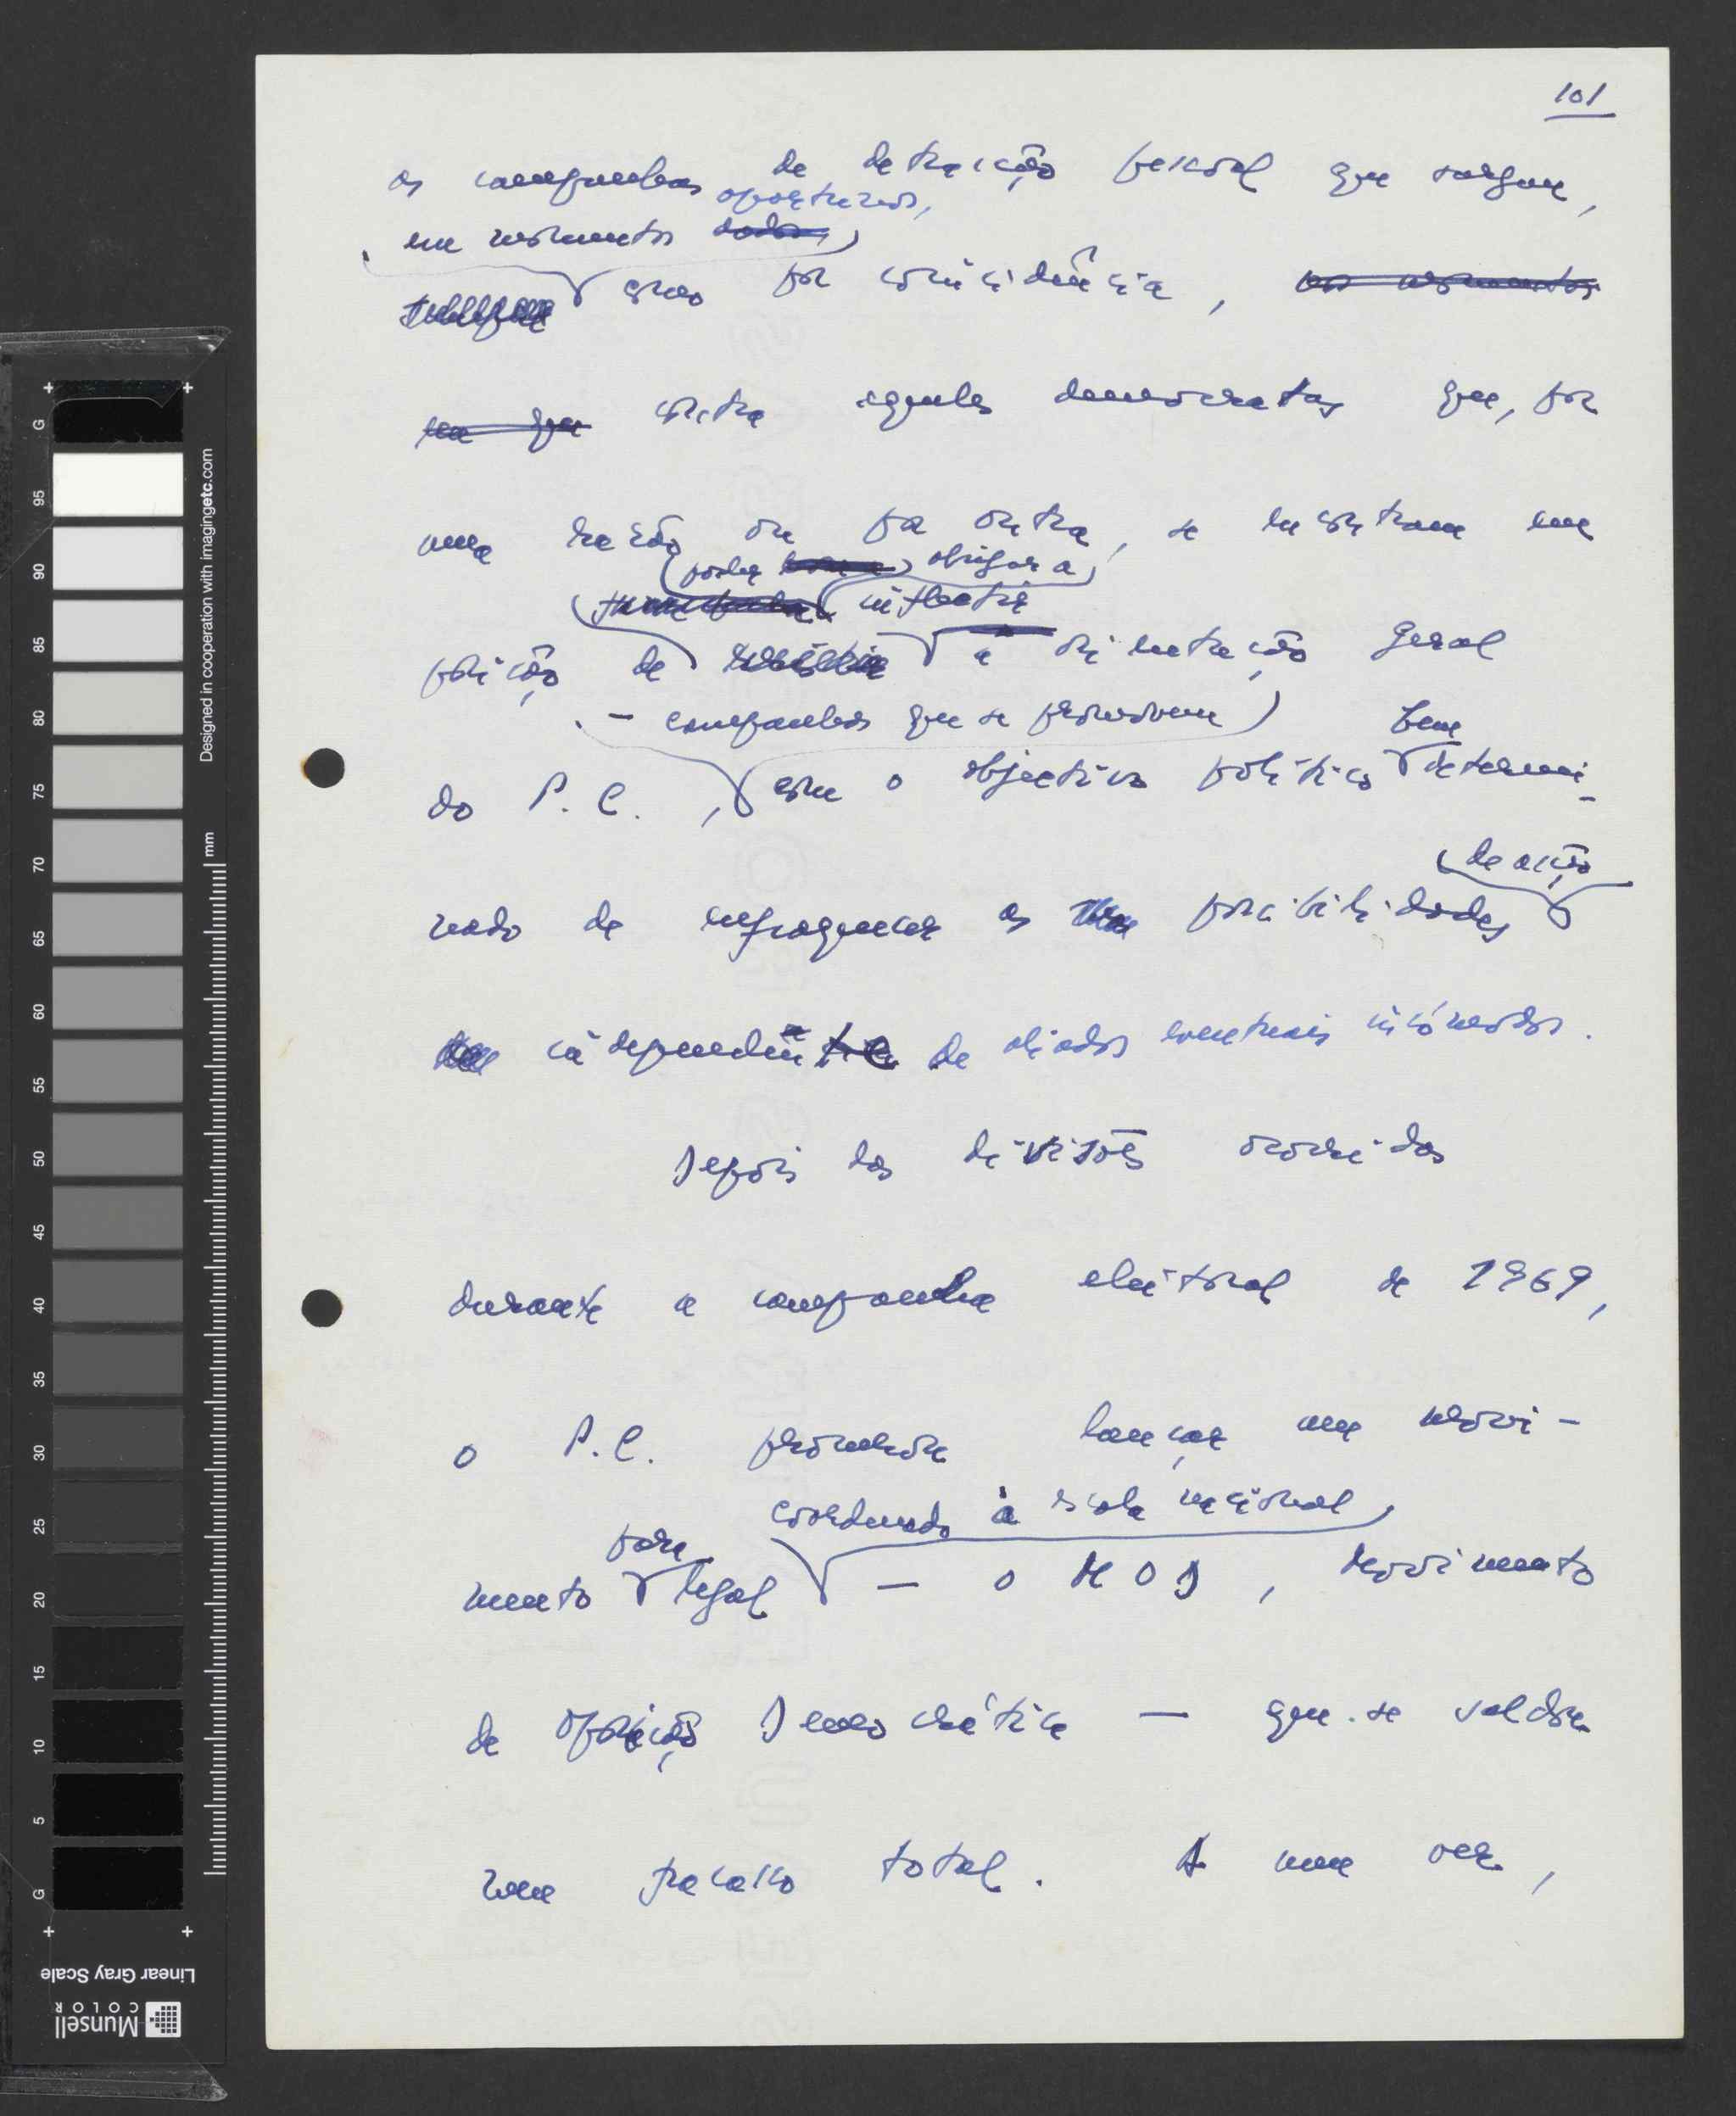 101
as campanhas de detracção pessoal que surgem,
oportunos,
em momentos dados
como por coincidência, nos momentos
em que contra aqueles democratas que, por
uma razão ou por outra, se encontram em
poder obrigar a
inflectir
posição de a orientação geral
- campanhas que se promovem
bem
do P.C., com o objectivo político determi-
de acção
nado de enfraquecer as possibilidades
independente de aliados eventuais incómodos.
Depois das divisões ocorridas
durante a campanha eleitoral de 1969,
o P.C. procurou lançar um movi-
coordenado à escala nacional
para
mento legal — o MOD, Movimento
de Oposição Democrática — que se saldou
num fracasso total. A meu ver,
G 95 90 85 80 75 70 65 60 55 50 45 40 35 30 25 20 15 10 5 G
Designed in cooperation with imagingetc.com
mm
Linear Gray Scale
Munsell
COLOR